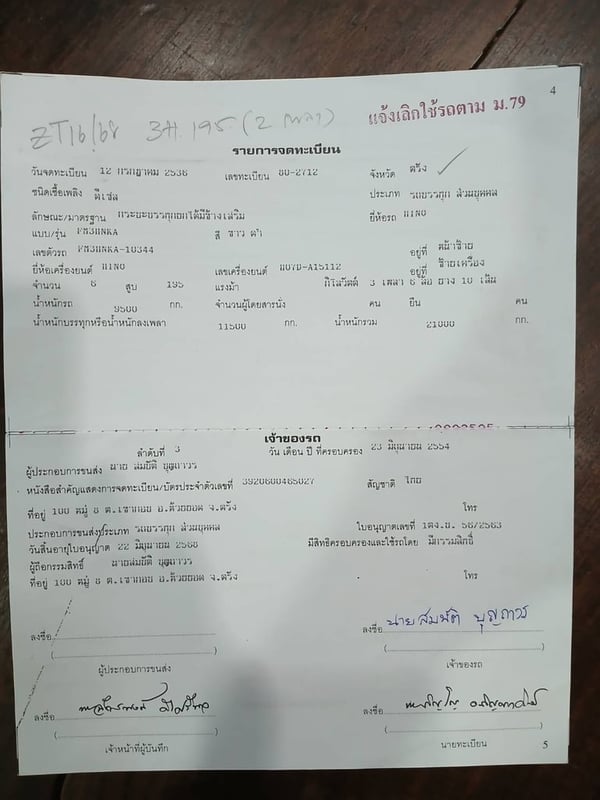 4
แจ้งเลิกใช้รถตาม ม.79
ZT16/68 3H.195 (2 เพลา)
รายการจดทะเบียน
วันจดทะเบียน 12 กรกฎาคม 2538 เลขทะเบียน 80-2712 จังหวัด ตรัง
ชนิดเชื้อเพลิง ดีเซล ประเภท รถบรรทุก ส่วนบุคคล
ลักษณะ/มาตรฐาน กระบะบรรทุกยกได้มีข้างเสริม ยี่ห้อรถ HINO
แบบ/รุ่น FM3HNKA สี ขาว ดำ
เลขตัวรถ FM3HNKA-10344 อยู่ที่ หน้าซ้าย
ยี่ห้อเครื่องยนต์ HINO เลขเครื่องยนต์ H07D-A15112 อยู่ที่ ซ้ายเครื่อง
จำนวน 6 สูบ 195 แรงม้า กิโลวัตต์ 3 เพลา 6 ล้อ ยาง 10 เส้น
น้ำหนักรถ 9500 กก. จำนวนผู้โดยสารนั่ง คน ยืน คน
น้ำหนักบรรทุกหรือน้ำหนักลงเพลา 11500 กก. น้ำหนักรวม 21000 กก.
เจ้าของรถ
ลำดับที่ 3 วัน เดือน ปี ที่ครอบครอง 23 มิถุนายน 2554
ผู้ประกอบการขนส่ง นาย สมบัติ บุญถาวร
หนังสือสำคัญแสดงการจดทะเบียน/บัตรประจำตัวเลขที่ 3920600465027 สัญชาติ ไทย
ที่อยู่ 100 หมู่ 8 ต.เขากอบ อ.ห้วยยอด จ.ตรัง โทร
ประกอบการขนส่งประเภท รถบรรทุก ส่วนบุคคล ใบอนุญาตเลขที่ 1ตง.บ. 58/2563
วันสิ้นอายุใบอนุญาต 22 มิถุนายน 2568 มีสิทธิครอบครองและใช้รถโดย มีกรรมสิทธิ์
ผู้ถือกรรมสิทธิ์ นายสมบัติ บุญถาวร
ที่อยู่ 100 หมู่ 8 ต.เขากอบ อ.ห้วยยอด จ.ตรัง โทร
ลงชื่อ ลงชื่อ นายสมบัติ บุญถาวร
( ) ( )
ผู้ประกอบการขนส่ง เจ้าของรถ
ลงชื่อ ลงชื่อ
( ) ( )
เจ้าหน้าที่ผู้บันทึก นายทะเบียน
5